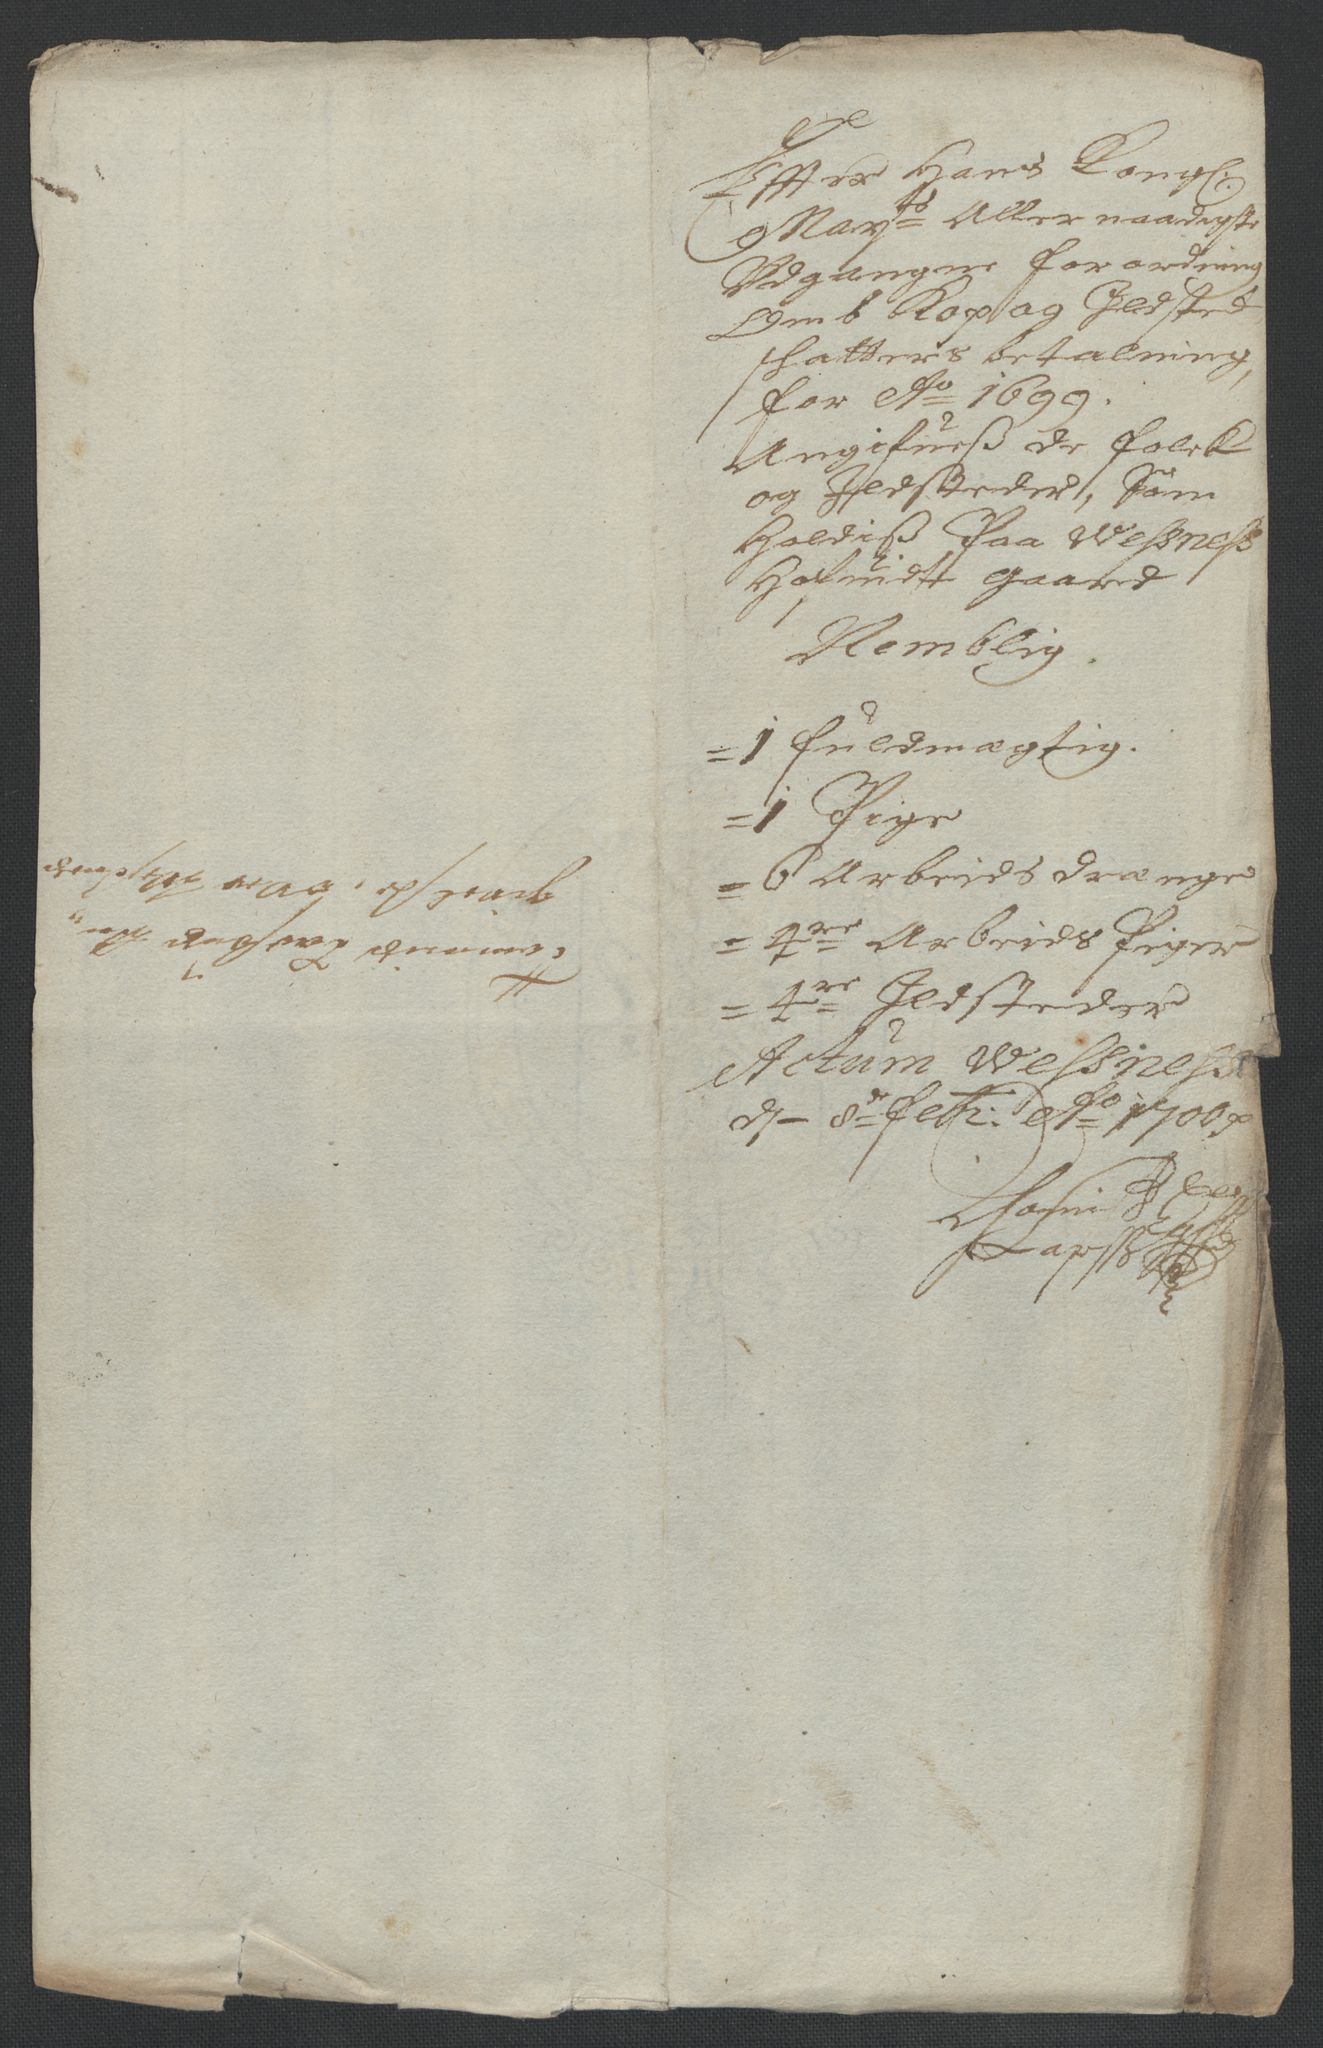 Effter Hans Kongl:
May:ts Aller naadigste
Udgangne forordning
Omb Kop og Ildsted
skatters betalning,
for Ao 1699.
Angifueß de folck
og Ildsteder, som
holdiß Paa Wessness
hofuidt gaard
Nemblig
= 1 fuldmægtig.
= 1 Pige
= 6 Arbeids drænge
= 4re Arbeids Piger
= 4re Ildsteder
Actum Wessness
d– 8de febr: Ao 1700
Larss